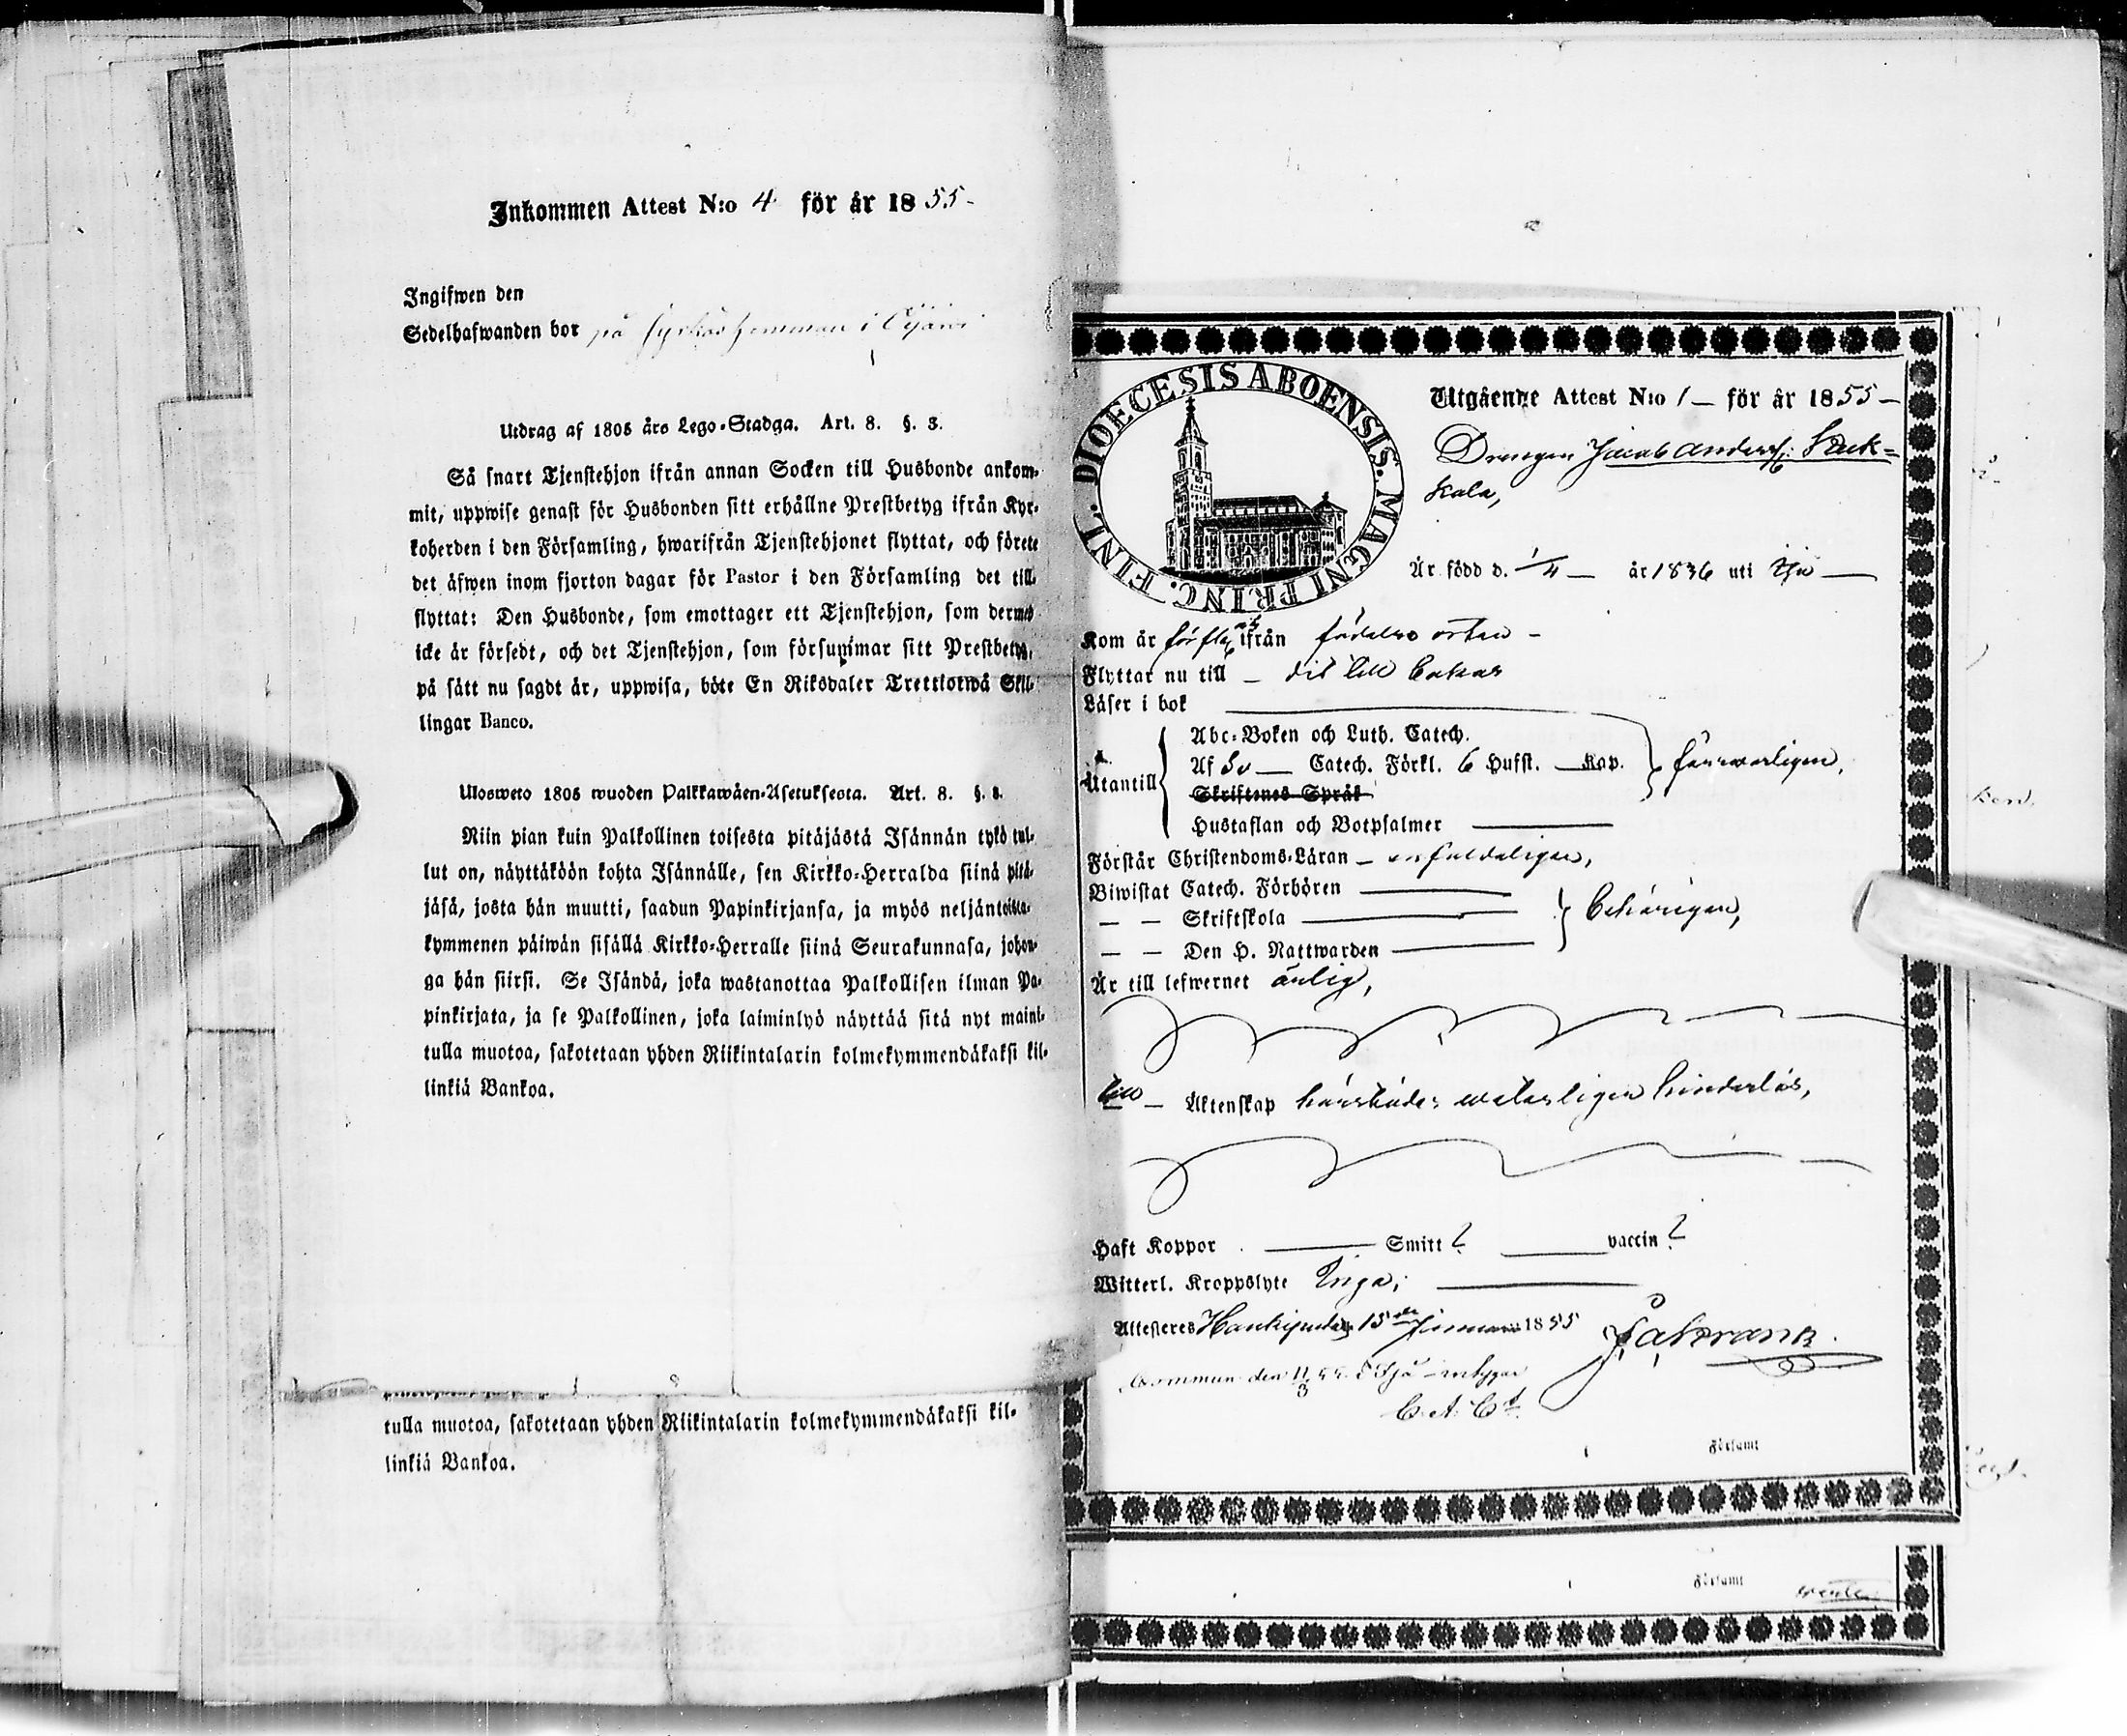 Inkommen Attest N:o 4 för år 1855-
Ingifwen den
Sedelhafwanden bor på hemman i
Utdrag af 1805 års Lego-Stadga. Art. 8. §. 3.
Så snart Tjenstehjon ifrån annan Socken till Husbonde ankom-
mit, uppwise genast för Husbonden sitt erhållne Prestbetyg ifrån Kyr-
koherden i den Församling, hwarifrån Tjenstehjonet flyttat, och förete
det äfwen inom fjorton dagar för Pastor i den Församling det till-
flyttat: Den Husbonde, som emottager ett Tjenstehjon, som dermed
icke är försedt, och det Tjenstehjon, som försummar sitt Prestbetyg,
på sätt nu sagdt är, uppwisa, böte En Riksdaler Trettiotwå Skil-
lingar Banco.
Ulosweto 1805 wuoden Palkkawäen-Asetuksesta. Art. 8. §. 3.
Niin pian kuin Palkollinen toisesta pitäjästä Isännän tykö tul-
lut on, näyttäköön kohta Isännälle, sen Kirkko-Herralda siinä pitä-
jäsä, josta hän muutti, saadun Papinkirjansa, ja myös neljäntoista-
kymmenen päiwän sisällä Kirkko-Herralle siinä Seurakunnasa, johon-
ga hän siirsi. Se Isändä, joka wastanottaa Palkollisen ilman Pa-
pinkirjata, ja se Palkollinen, joka laiminlyö näyttää sitä nyt maini-
tulla muotoa, sakotetaan yhden Riikintalarin kolmekymmendäkaksi kil-
linkiä Bankoa.
tulla muotoa, sakotetaan yhden Riikintalarin kolmekymmendäkaksi kil-
linkiä Bankoa.
DIOECESIS ABOENSIS. MAGNI PRINC. FINL.
Utgående Attest N:o 1 — för år 1855 —
Drengen Jacob Anders
kala,
Är född d. 1/4 — år 1836 uti Ijo —
Kom år ifrån födelse orten -
Flyttar nu till — dit till bakas
Läser i bok
Utantill
Abc-Boken och Luth. Catech.
Af So — Catech. Förkl. 6 Hufst. — Kap. försvarligen,
Skriftenes Språk
Hustaflan och Botpsalmer
Förstår Christendoms-Läran — enfaldeligen,
Biwistat Catech. Förhören
— — Skriftskola behörigen,
— — Den H. Nattwarden
Är till lefwernet ärlig,
till — Äktenskap härstädes veterligen hinderlös,
Haft Koppor Smitt ? vaccin ?
Witterl. Kroppslyte Inga;
Attesteres Haukipudas 15de Januari 1855
den 11/3 55
C. A. Ct.
Församl
Församl